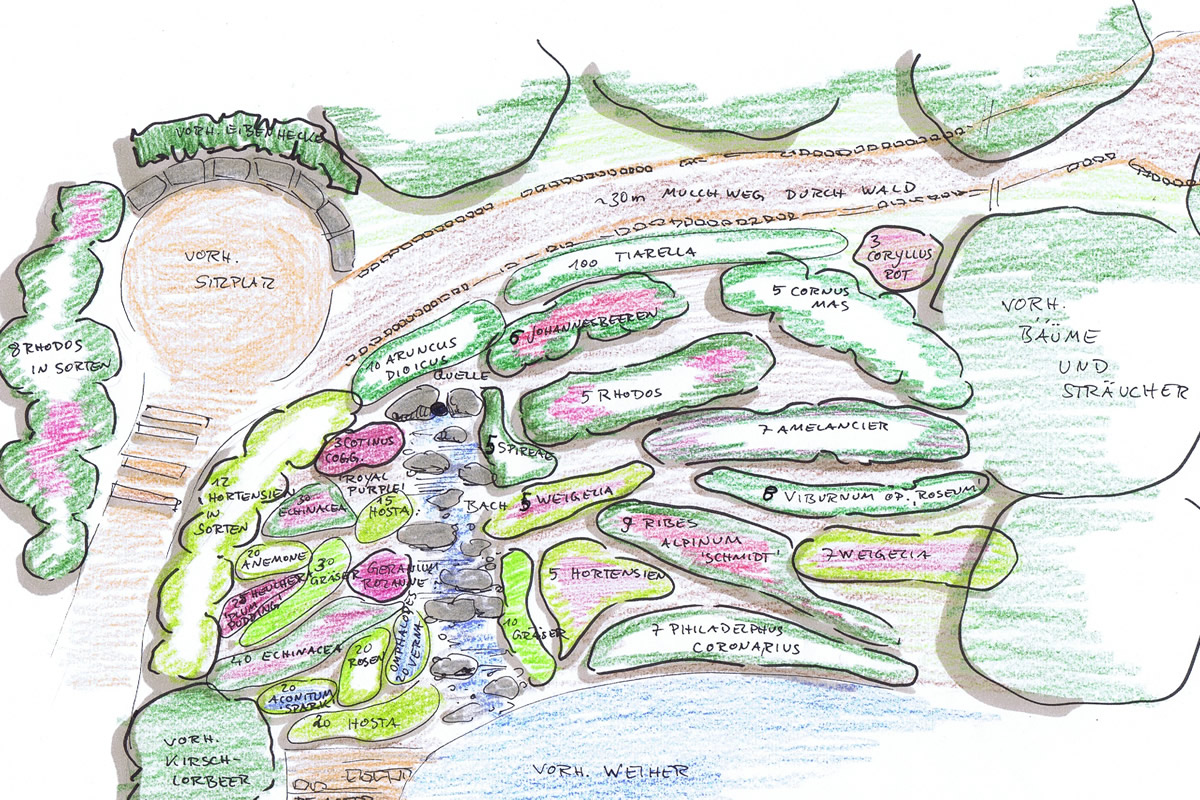 VORH. EIBENHECKE
~30m MULCHWEG DURCH WALD
VORH.
SITZPLATZ
3
CORYLLUS
ROT
100 TIARELLA
5 CORNUS
MAS
VORH.
BÄUME
UND
STRÄUCHER
6 JOHANNESBEEREN
10 ARUNCUS
DIOICUS
QUELLE
8 RHODOS
IN SORTEN
5 RHODOS
7 AMELANCIER
3 COTINUS
COGG.
'ROYAL
PURPLE'
5 SPIREAE
12
HORTENSIEN
IN
SORTEN
30
ECHINACEA
15
HOSTA
BACH
5 WEIGELIA
8 VIBURNUM OP. ROSEUM
9 RIBES
ALPINUM
'SCHMIDT'
7 WEIGELIA
20
ANEMONE
30
GRÄSER
GERANIUM
ROZANNE
5 HORTENSIEN
25 HEUCHERA
'PLUM
PUDDING'
10
GRÄSER
7 PHILADELPHUS
CORONARIUS
40 ECHINACEA
20
ROSEN
20 OMPHALODES
VERNA
20
ACONITUM
'SPARK'
20 HOSTA
VORH.
KIRSCH-
LORBEER
VORH. WEIHER